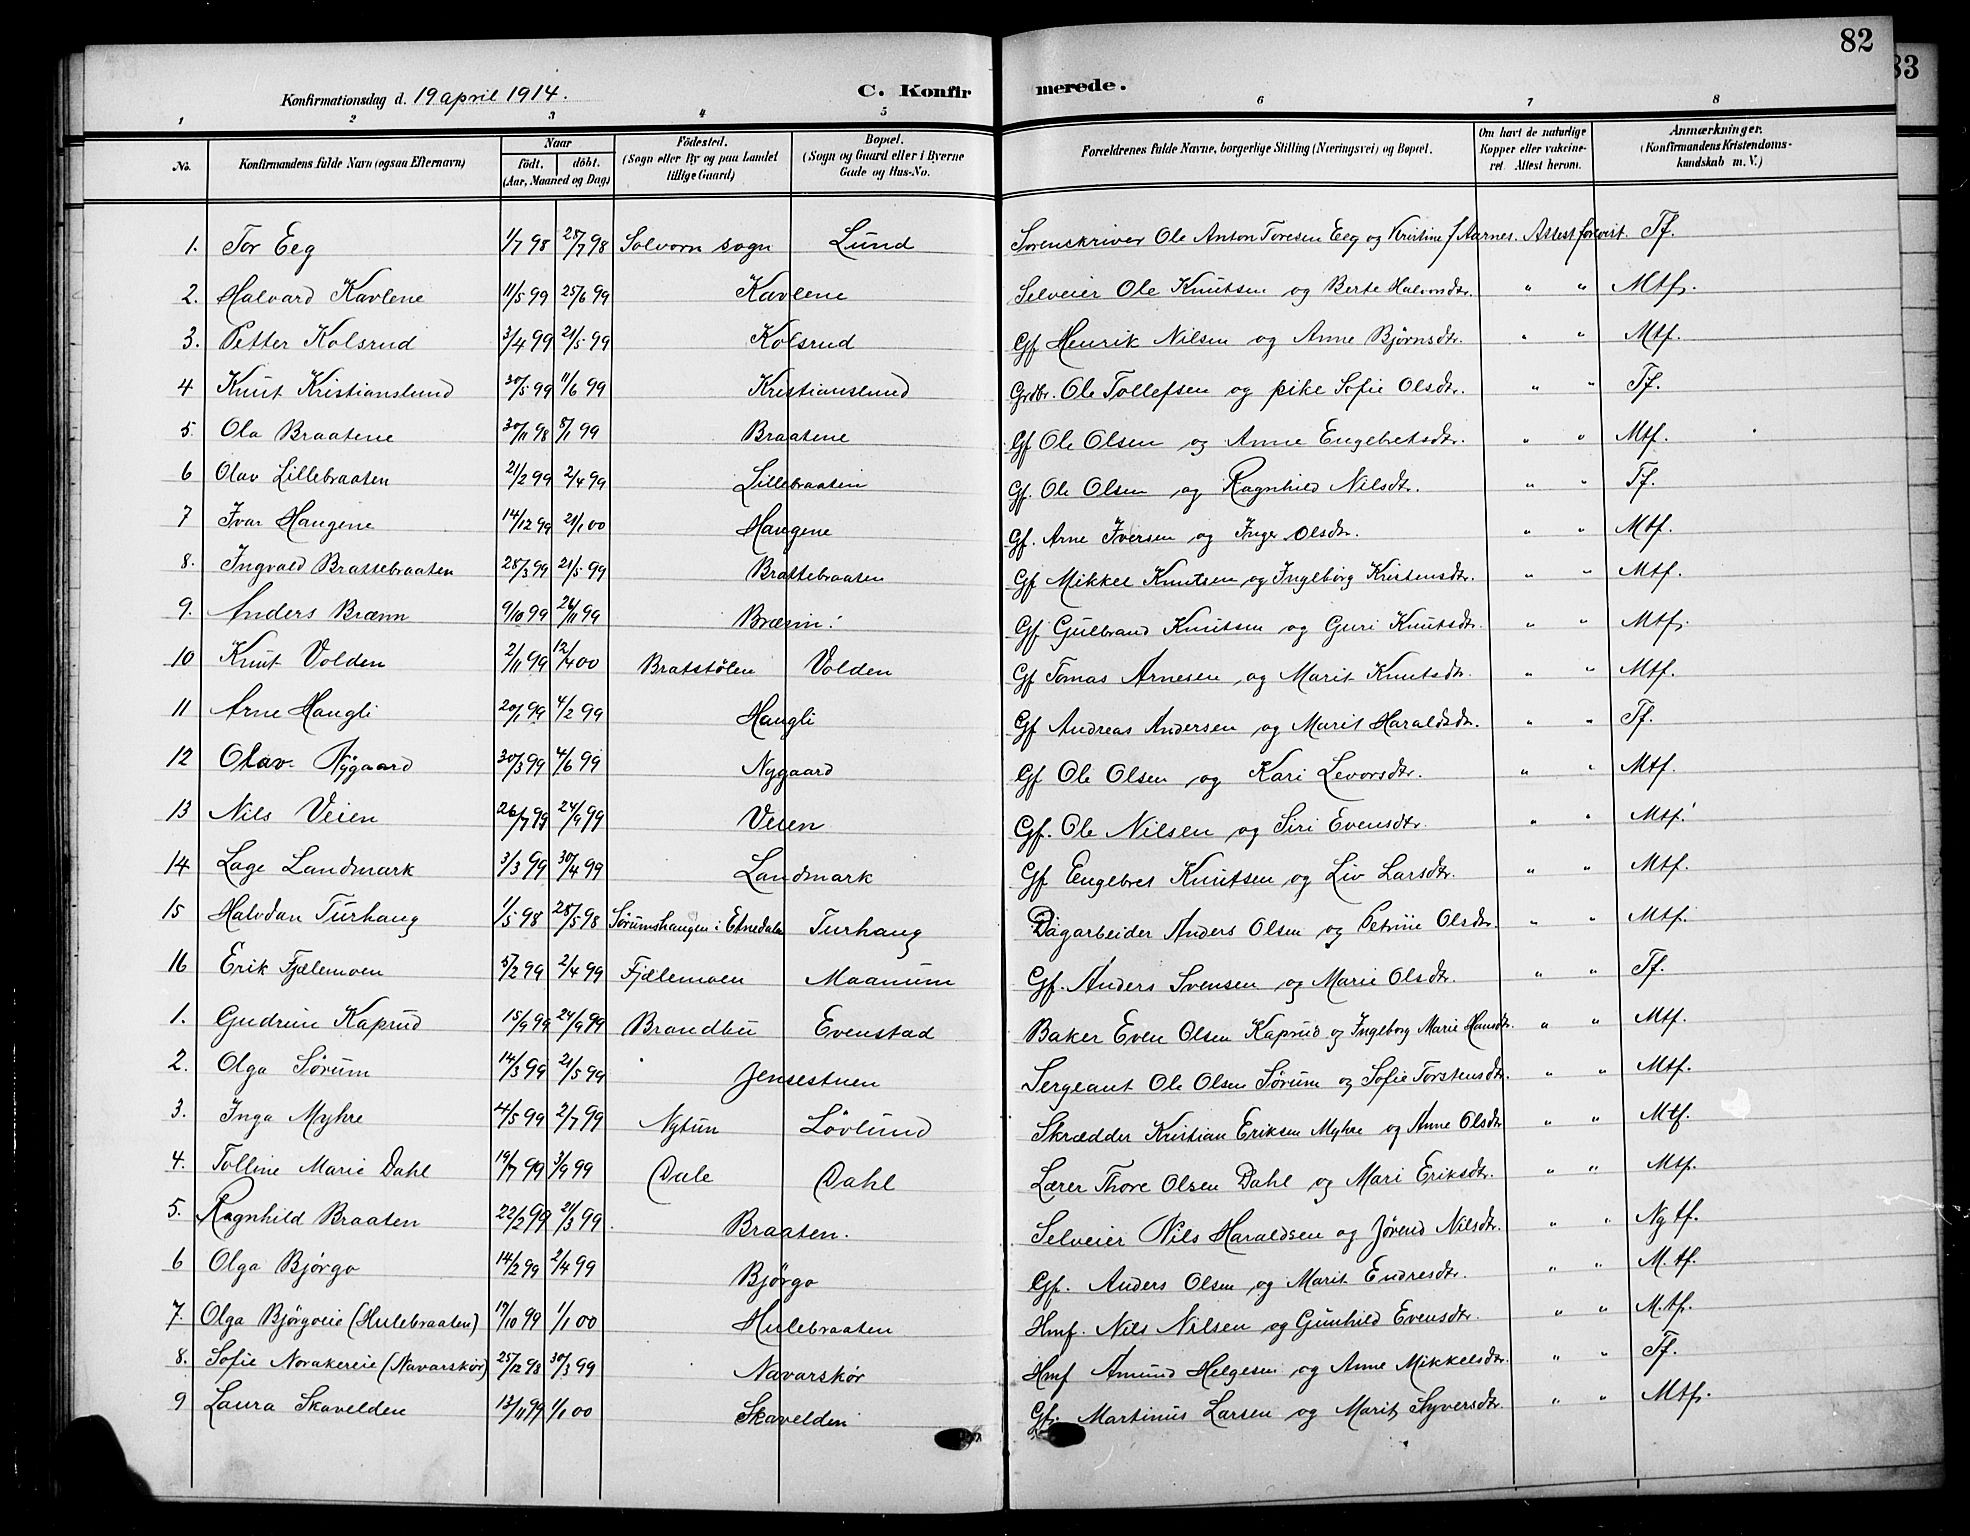 82
83
Konfirmationsdag d. 19 april 1914.
C. Konfirmerede.
1 2 3 4 5 6 7 8
No. Konfirmandens fulde Navn (ogsaa Efternavn) Naar födt, döbt. (Aar, Maaned og Dag) Födested. (Sogn eller By og paa Landet tillige Gaard) Bopæl. (Sogn og Gaard eller i Byerne Gade og Hus-No. Forældrenes fulde Navne, borgerlige Stilling (Næringsvei) og Bopæl. Om havt de naturlige Kopper eller vakcineret. Attest herom. Anmærkninger. (Konfirmandens Kristendomskundskab m. V.)
1. Tor Eeg 1/7 98 28/7 98 Solvorn sogn Lund Sorenskriver Ole Anton Toresen Eeg og Kristine f Aarnes. Attest forevist. Tf.
2. Halvard Kavlene 11/5 99 25/6 99 Kavlene Selveier Ole Knutsen og Berte Halvorsdtr. " " Mtf.
3. Petter Kolsrud 3/4 99 21/5 99 Kolsrud Gf Henrik Nilsen og Anne Bjørnsdtr. " " Mtf.
4 Knut Kristianslund 30/5 99 11/6 99 Kristianslund Grdbr. Ole Tollefsen og pike Sofie Olsdtr. " " Tf.
5. Ola Braatene 30/11 98 8/1 99 Braatene Gf Ole Olsen og Anne Engebretsdtr. " " Mtf.
6 Olav Lillebraaten 21/2 99 2/4 99 Lillebraaten Gf. Ole Olsen og Ragnhild Nilsdtr. " " Tf.
7 Ivar Haugene 14/12 99 21/1 00 Haugene Gf. Arne Iversen og Inger Olsdtr. " " Mtf.
8. Ingvald Brattebraaten 28/3 99 21/5 99 Brattebraaten Gf Mikkel Knutsen og Ingeborg Kristensdtr. " " Mtf.
9. Anders Brænn 9/10 99 26/11 99 Brænn. Gf Gulbrand Knutsen og Guri Knutsdtr. " " Mtf.
10 Knut Volden 2/11 99 12/4 00 Bratstølen Volden Gf Tomas Arnesen og Marit Knutsdtr. " " Mtf.
11 Arne Haugli 20/1 99 4/2 99 Haugli Gf Andreas Andersen og Marit Haraldsdtr. " " Tf.
12 Olav Nygaard 30/3 99 4/6 99 Nygaard Gf Ole Olsen og Kari Levorsdtr. " " Mtf.
13 Nils Veien 26/7 99 24/9 99 Veien Gf. Ole Nilsen og Siri Evensdtr. " " Mtf.
14 Lage Landmark 3/3 99 30/4 99 Landmark Gf Engebret Knutsen og Liv Larsdtr. " " Mtf.
15 Halvdan Turhaug 1/5 98 28/5 98 Sørumshaugen i Etnedalen Turhaug Dagarbeider Anders Olsen og Petrine Olsdtr. " " Mtf.
16 Erik Fjælemoen 5/2 99 2/4 99 Fjælemoen Maanum Gf. Anders Svensen og Marie Olsdtr. " " Tf.
1. Gudrun Kaprud 15/9 99 24/9 99 Brandbu Evenstad Baker Even Olsen Kaprud og Ingeborg Marie Hansdtr. " " Mtf.
2. Olga Sørum 14/3 99 21/5 99 Jensestuen Sergeant Ole Olsen Sørum og Sofie Torstensdtr. " " Mtf.
3. Inga Myhre 4/5 99 2/7 99 Nytun Løvlund Skrædder Kristian Eriksen Myhre og Anne Olsdtr " " Mtf.
4. Tolline Marie Dahl 19/7 99 3/9 99 Dale Dahl Lærer Thore Olsen Dahl og Mari Eriksdtr. " " Mtf.
5. Ragnhild Braaten 22/2 99 21/3 99. Braaten. Selveier Nils Haraldsen og Jørend Nilsdtr. " " Ng tf.
6 Olga Bjørgo 14/2 99 2/4 99 Bjørgo Gf. Anders Olsen og Marit Endresdtr. " " M.tf.
7. Olga Bjørgoeie (Hulebraaten) 17/10 99 1/1 00 Hulebraaten Hmf. Nils Nilsen og Gunhild Evensdtr. " " M.tf.
8. Sofie Norakereie (Navarskør) 25/12 98 30/3 99 Navarskør Hmf Amund Helgesen og Anne Mikkelsdtr. " " Tf.
9 Laura Skavelden 13/11 99 1/1 00 Skavelden Gf. Martinus Larsen og Marit Syversdtr. " " Mtf.